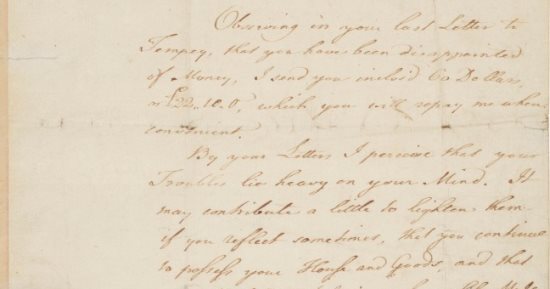 Observing in your last Letter to
Tempey, that you have been disappointed
of Money, I send you inclos'd 60 Dollars,
or £22.10.0, which you will repay me when
convenient.
By your Letters I perceive that your
Troubles lie heavy on your Mind. It
may contribute a little to lighten them
if you reflect sometimes, that you continue
to possess your House and Goods, and that